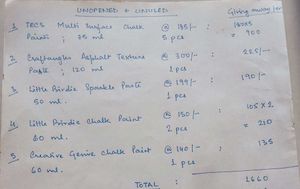 UNOPENED + UNUSED
Giving away for
1 TRCS Multi Surface Chalk @ 195/- : 180x5
Paint ; 75 ml 5 pcs = 900
2. Craftangles Asphalt Texture @ 300/- : 225/-
Paste ; 120 ml 1 pcs
3 Little Birdie Sparkle Paste @ 199/- : 190/-
50 ml. 1 pcs
4. Little Birdie Chalk Paint @ 150/- : 105 x 2
60 ml. 2 pcs = 210
5 Creative Genie Chalk Paint @ 140/- : 135
60 ml. 1 pcs
TOTAL : 1660